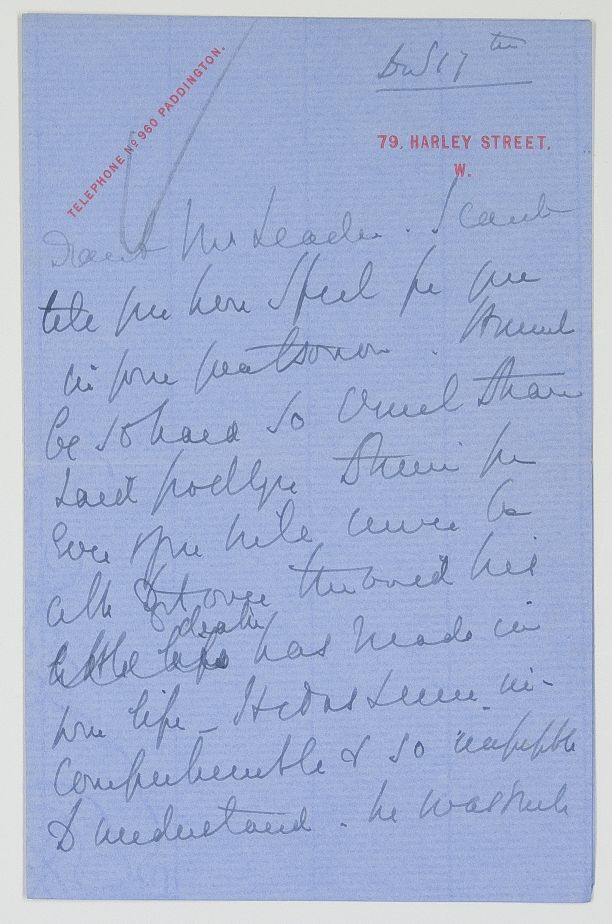 TELEPHONE Nº 960 PADDINGTON.
17th
79, HARLEY STREET,
W.
Dear Mr Leader. I can't
tell you how I feel for you
in your great sorrow. It must
be so hard so cruel to have
said goodbye to him for
ever & you will never be
able to get over the void his
death
has made in
your life _ It does seem in-
comprehensible & so impossible
to understand. he was such